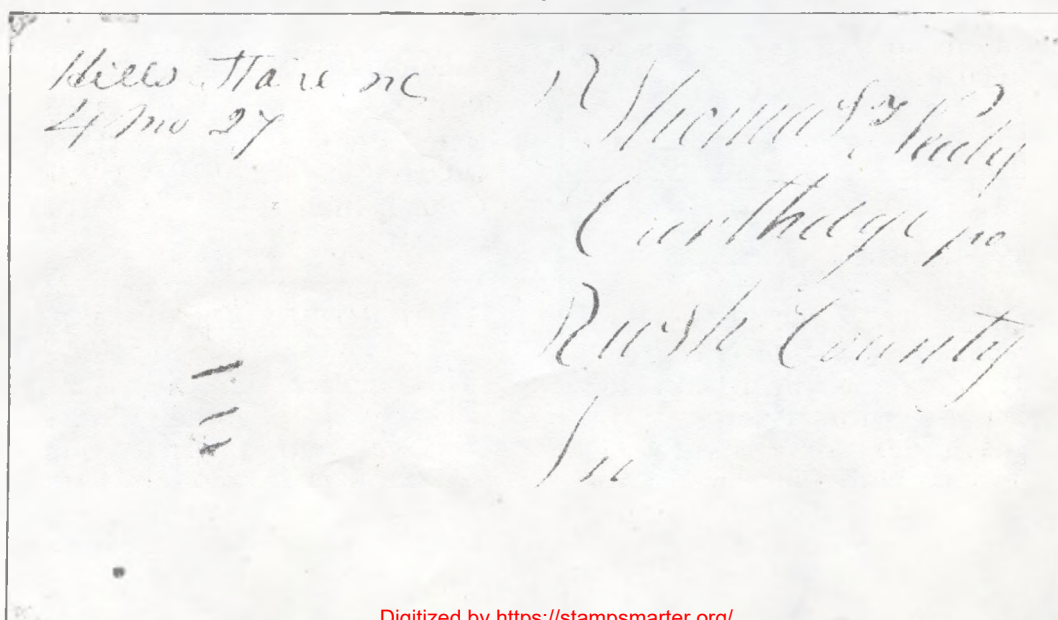 Hills Store NC
4 Mo 27
Thomas T
Carthage po
Rush County
In
Digitized by https://stampsmarter.org/